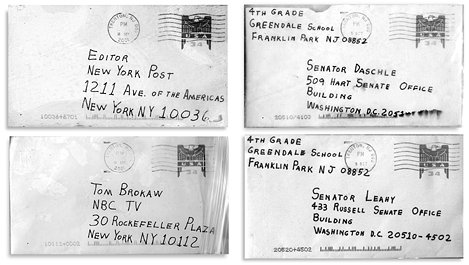 TRENTON, NJ
PM
34
EDITOR
NEW YORK POST
1211 AVE. OF THE AMERICAS
NEW YORK NY 10036
10036+6701
4TH GRADE
GREENDALE SCHOOL
FRANKLIN PARK NJ 08852
PM
34
SENATOR DASCHLE
509 HART SENATE OFFICE
BUILDING
WASHINGTON D.C. 20510-
20510/4103
PM
USA
34
TOM BROKAW
NBC TV
30 ROCKEFELLER PLAZA
NEW YORK NY 10112
10111+0002
4TH GRADE
GREENDALE SCHOOL
FRANKLIN PARK NJ 08852
TRENTON, NJ
PM
USA
34
SENATOR LEAHY
433 RUSSELL SENATE OFFICE
BUILDING
WASHINGTON D.C. 20510-4502
20520+4502